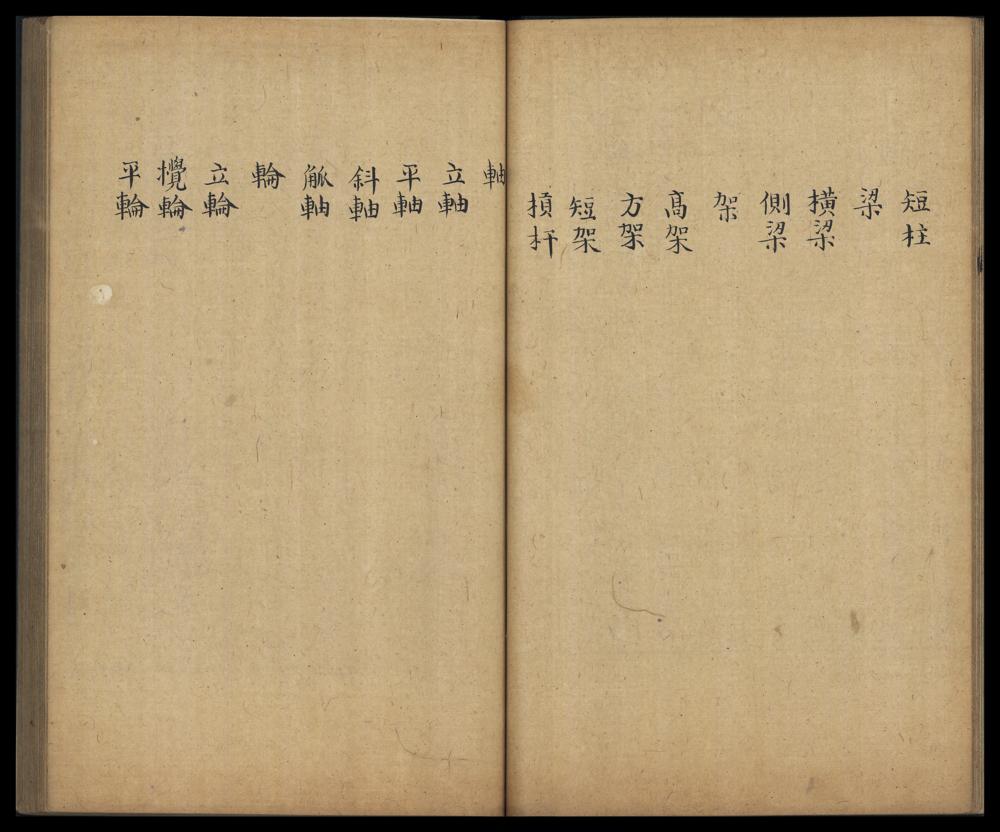 短柱
梁
橫梁
側梁
架
髙架
方架
短架
摃杆
軸
立軸
平軸
斜軸
觚軸
輪
立輪
攪輪
平輪